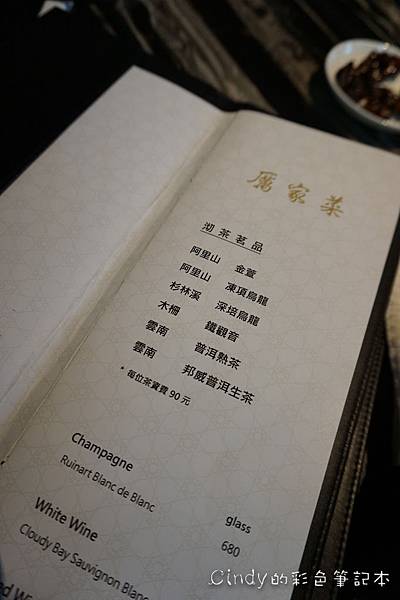 厲家菜
沏茶茗品
阿里山 金萱
阿里山 凍頂烏龍
杉林溪 深培烏龍
木柵 鐵觀音
雲南 普洱熟茶
雲南 邦威普洱生茶
* 每位茶資費 90 元
Champagne
Ruinart Blanc de Blanc
glass
White Wine
680
Cloudy Bay Sauvignon Blanc
Cindy的彩色筆記本